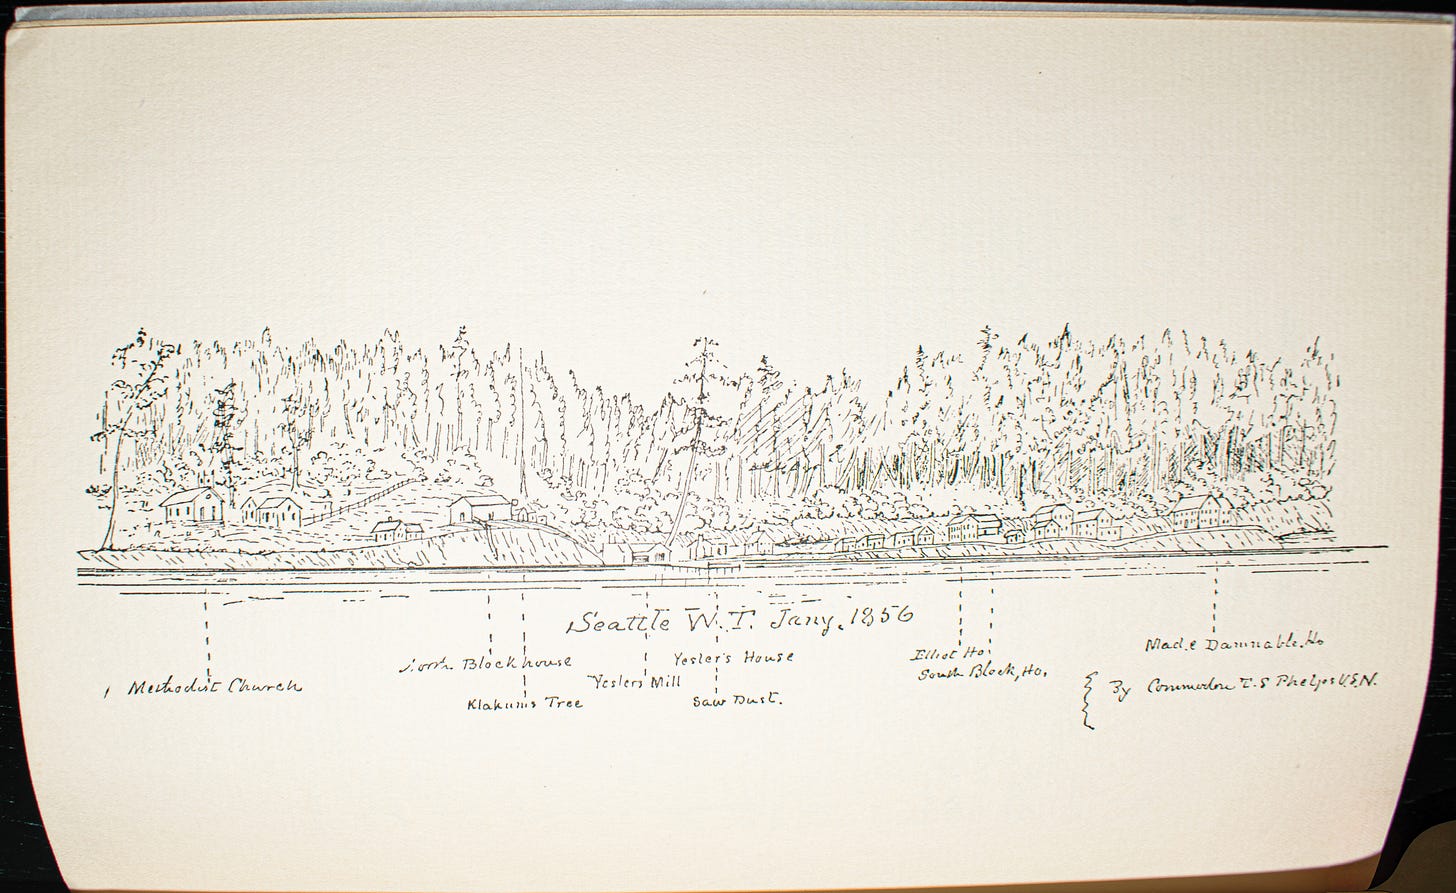 Seattle W.T. Jany. 1856
Methodist Church
North Blockhouse
Klakums Tree
Yeslers Mill
Yesler's House
Saw Dust.
Elliot Ho.
South Block, Ho.
Mad.e Damnable. Ho
By Commodore T.S Phelps U.S.N.